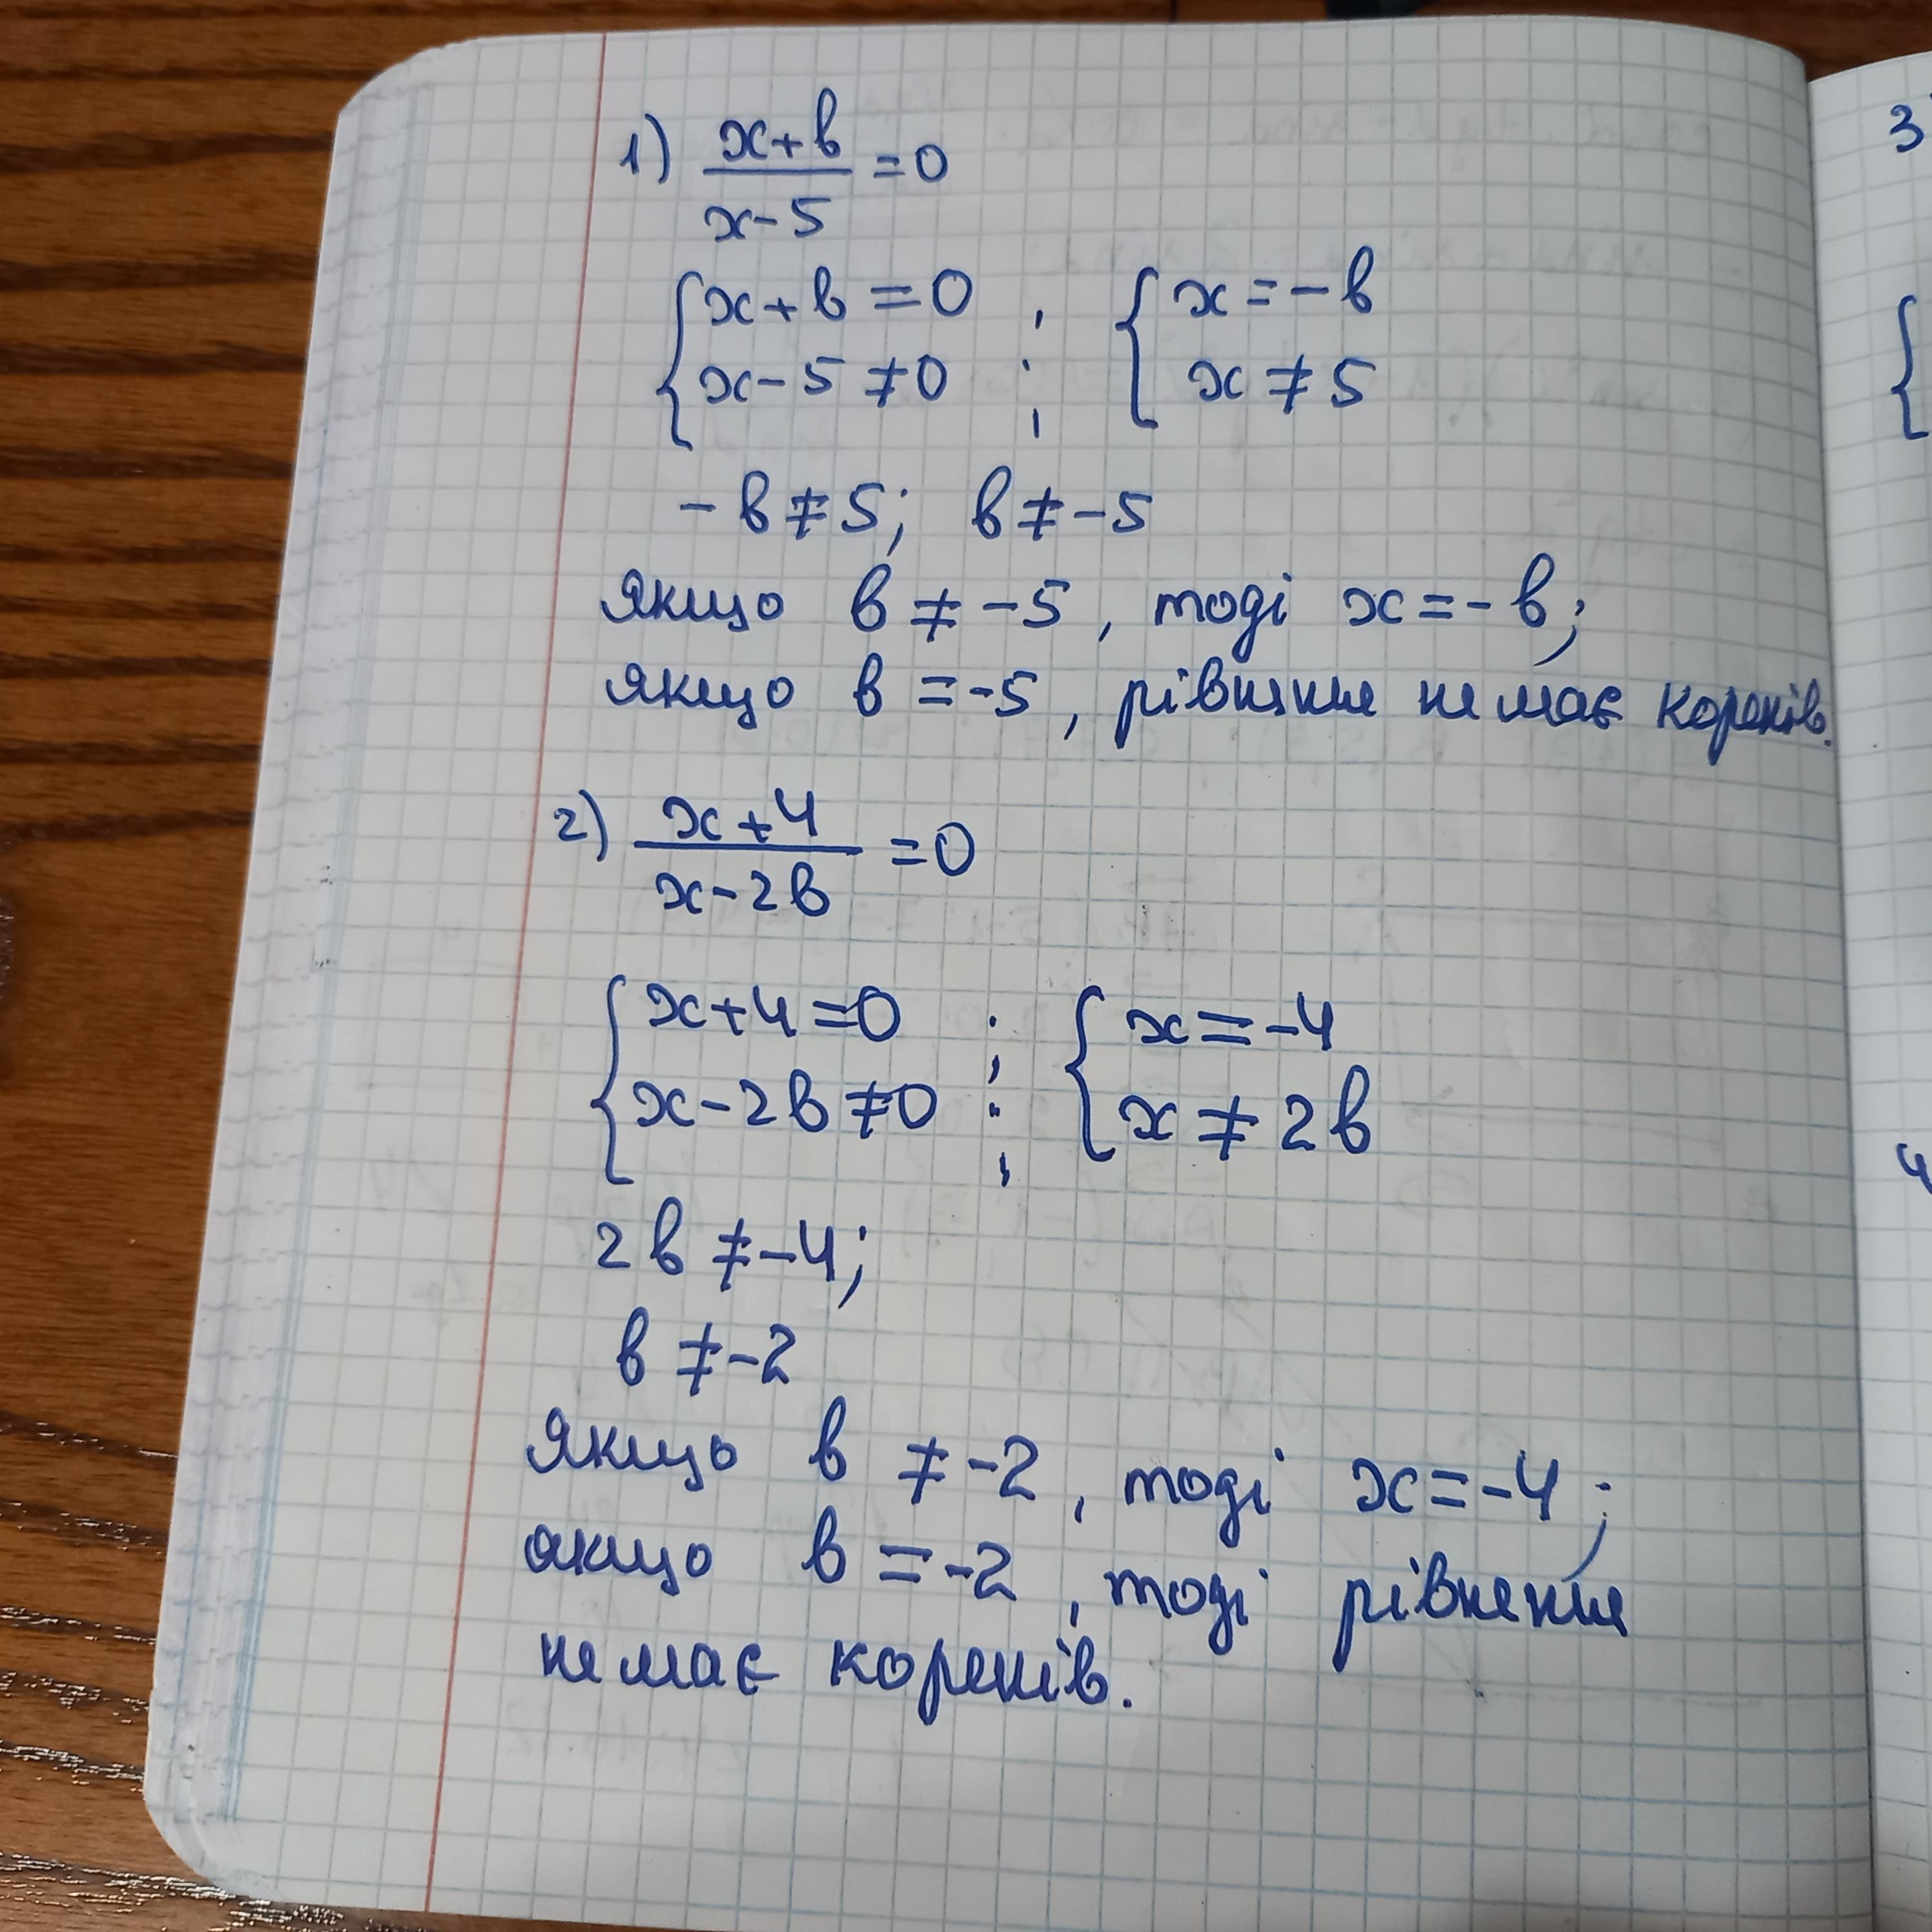 1) (x+b)/(x-5) = 0
{ x+b=0 ; { x=-b
{ x-5≠0 ; { x≠5
-b≠5; b≠-5
Якщо b≠-5, тоді x=-b;
якщо b=-5, рівняння не має коренів.
2) (x+4)/(x-2b) = 0
{ x+4=0 ; { x=-4
{ x-2b≠0 ; { x≠2b
2b≠-4;
b≠-2
Якщо b≠-2, тоді x=-4;
якщо b=-2, тоді рівняння
не має коренів.
3
{
4